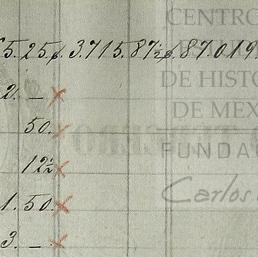 CENTRO
5.25 3.715.87½ 87.019
DE HISTO
2. — x
DE MEX
50. x
FUNDA
12½ x
Carlos
1.50. x
3. — x